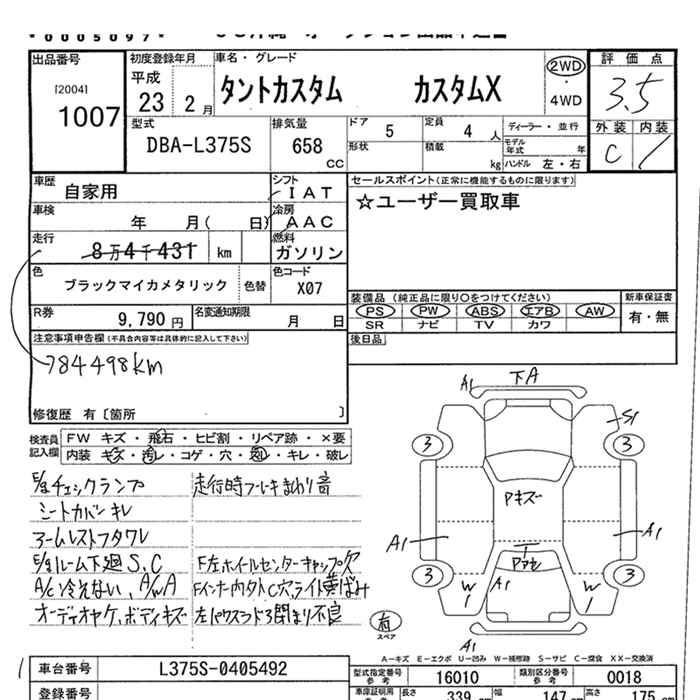 0005097
出品番号
[2004]
1007
初度登録年月
平成
23 2月
車名・グレード
タントカスタム カスタムX
2WD
・
4WD
評価点
3.5
外装 内装
C
型式
DBA-L375S
排気量
658
CC
ドア 5
定員 4 人
形状
積載 kg
ディーラー・並行
モデル年式 年
ハンドル 左・右
車歴 自家用
シフト
IAT
車検 年 月( 日)
冷房
AAC
走行 8万4千431 km
燃料
ガソリン
色 ブラックマイカメタリック 色替
色コード
X07
R券 9,790円
名変通知期限 月 日
セールスポイント(正常に機能するものに限ります)
☆ユーザー買取車
装備品 (純正品に限り○をつけてください)
PS PW ABS エアB AW
SR ナビ TV カワ
新車保証書
有・無
後日品
注意事項申告欄(不具合内容等は具体的に記入して下さい)
84498km
修復歴 有〔箇所 〕
検査員記入欄
FW キズ・飛石・ヒビ割・リペア跡・×要
内装 キズ・汚レ・コゲ・穴・凹レ・キレ・破レ
E/gチェックランプ
走行時ブレーキまわり音
シートカバーキレ
アームレストフタワレ
E/gルーム下廻S.C
F左ホイールセンターキャップ欠
A/C冷えない、A/WA
Fインナー内外C穴、ライト黄ばみ
オーディオヤケ、ボディキズ
左パワスラド3閉まり不良
A1
下A
S1
3
3
Pキズ
A1
A1
3
3
W
A1
W
有
スペア
A1
A―キズ E―エクボ U―凹み W―補修跡 S―サビ C―腐食 XX―交換済
車台番号 L375S-0405492
型式指定番号
参考
16010
類別区分番号
参考
0018
登録番号
車庫証明用
参考
長さ 339
幅 147
高さ 175